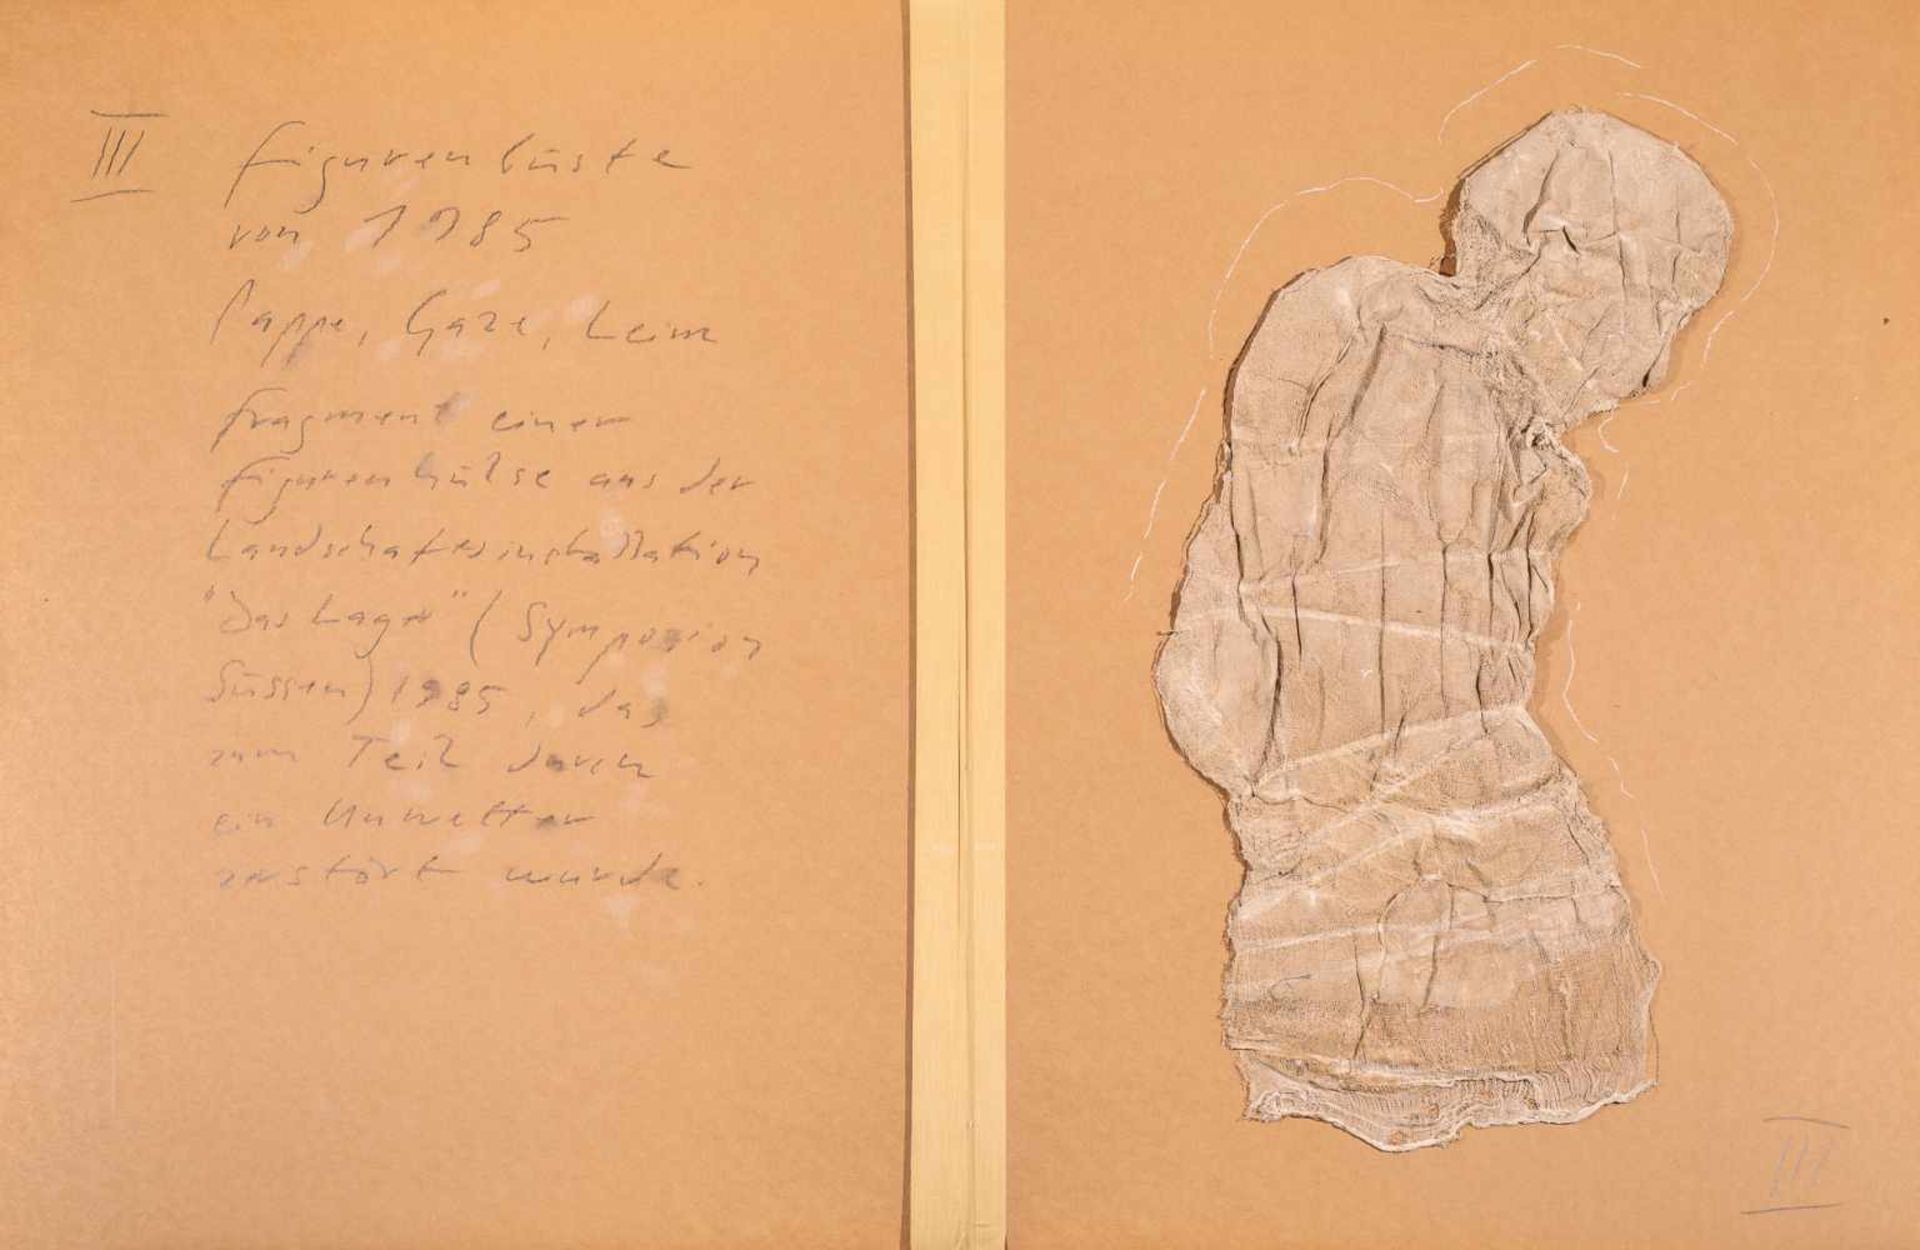 III Figurenbüste
von 1985
Pappe, Gaze, Leim
Fragment einer
Figurenhülse aus der
Landschaftsinstallation
"Das Lager" (Symposion
Süssen) 1985, das
zum Teil durch
ein Unwetter
zerstört wurde.
III